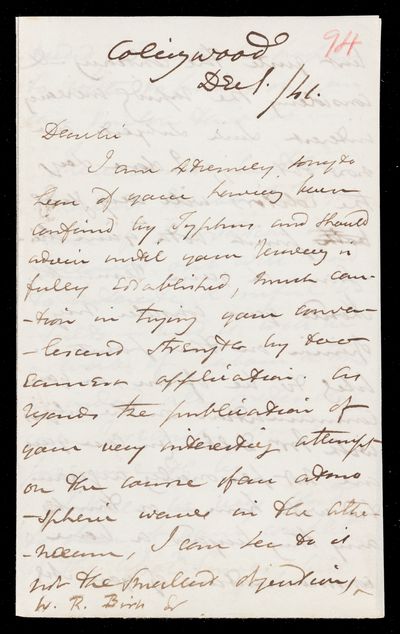 94
Collingwood
Dec 1. /41.
Dear Sir
I am extremely sorry to
hear of your having been
confined by Typhus and should
advise until your recovery is
fully established, much cau-
-tion in trying your conva-
-lescent strength by too
earnest application. As
regards the publication of
your very interesting attempt
on the course of an atmo
-spheric waves in the Athe-
-naeum, I can see to it
not the smallest objection,
W. R. Birt Esq